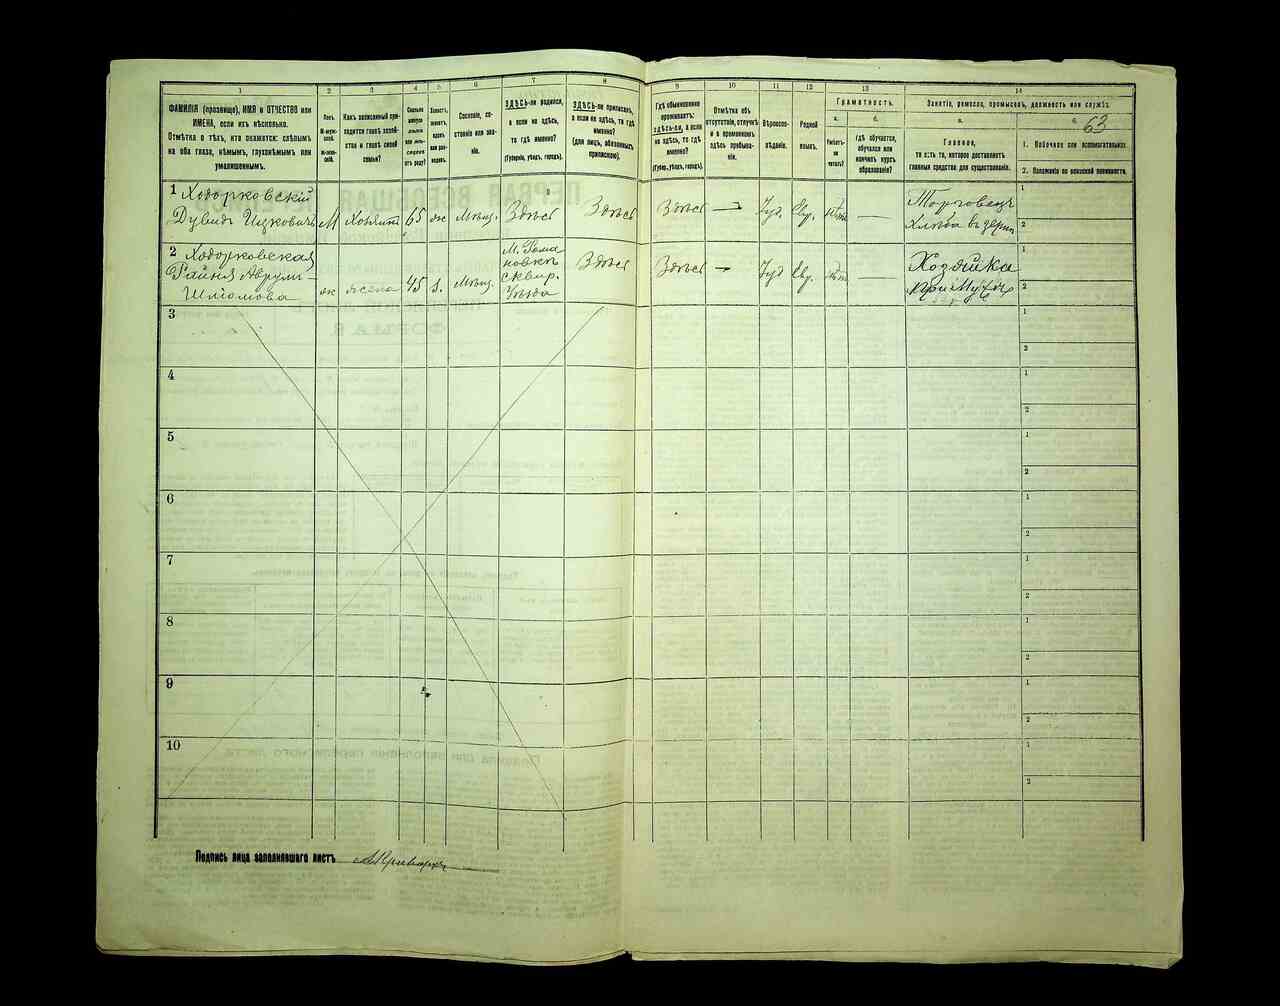 1 2 3 4 5 6 7 8 9 10 11 12 13 14
ФАМИЛІЯ (прозвище), ИМЯ и ОТЧЕСТВО или
ИМЕНА, если ихъ нѣсколько.
Отмѣтка о тѣхъ, кто окажется: слѣпымъ
на оба глаза, нѣмымъ, глухонѣмымъ или
умалишеннымъ.
Полъ.
М-муж-
ской.
Ж-жен-
скій.
Какъ записанный при-
ходится главѣ хозяй-
ства и главѣ своей
семьи?
Сколько
минуло
лѣтъ
или мѣ-
сяцевъ
отъ роду?
Холостъ,
женатъ,
вдовъ
или раз-
веденъ.
Сословіе, со-
стояніе или зва-
ніе.
ЗДѢСЬ-ли родился,
а если не здѣсь,
то гдѣ именно?
(Губернія, уѣздъ, городъ).
ЗДѢСЬ-ли приписанъ,
а если не здѣсь, то гдѣ
именно?
(для лицъ, обязанныхъ
припискою).
Гдѣ обыкновенно
проживаетъ:
здѣсь-ли, а если
не здѣсь, то гдѣ
именно?
(Губер., уѣздъ, городъ).
Отмѣтка объ
отсутствіи, отлучкѣ
и о временномъ
здѣсь пребыва-
ніи.
Вѣроиспо-
вѣданіе.
Родной
языкъ.
Грамотность.
а. б.
Умѣетъ-
ли
читать?
Гдѣ обучается,
обучался или
кончилъ курсъ
образованія?
Занятіе, ремесло, промыселъ, должность или служба.
а. б. 63
Главное,
то есть то, которое доставляетъ
главныя средства для существованія.
1. Побочное или вспомогательное.
2. Положеніе по воинской повинности.
1 Ходорковскій
Дувидъ Ицковичъ М Хозяинъ 65 ж Мѣщ. Здѣсь Здѣсь Здѣсь — Іуд. Евр. — Торговецъ
Хлѣба въ зерн
1
2
2 Ходорковская
Райня Аврумъ-
Шліомова ж жена 45 з. Мѣщ. М. Рома
новкѣ
сквир.
Уѣзда Здѣсь Здѣсь — Іуд Евр. Хозяйка
при Мужѣ
1
2
3 1
2
4 1
2
5 1
2
6 1
2
7 1
2
8 1
2
9 1
2
10 1
2
Подпись лица заполнявшаго листъ